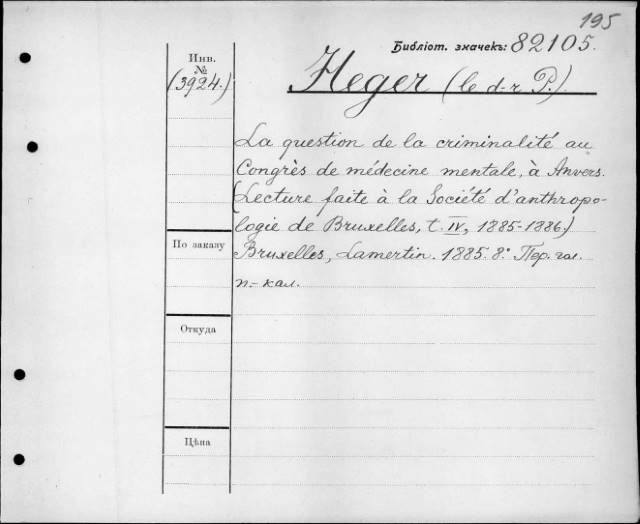 195
Библіот. значекъ: 82105.
Инв.
№
(3924.)
Heger (le d-r P.)
La question de la criminalité au
Congrès de médecine mentale, à Anvers.
(Lecture faite à la Société d'anthropo-
logie de Bruxelles, t. IV, 1885-1886.)
По заказу
Bruxelles, Lamertin. 1885. 8.° Пер. гол.
п.- кал.
Откуда
Цѣна